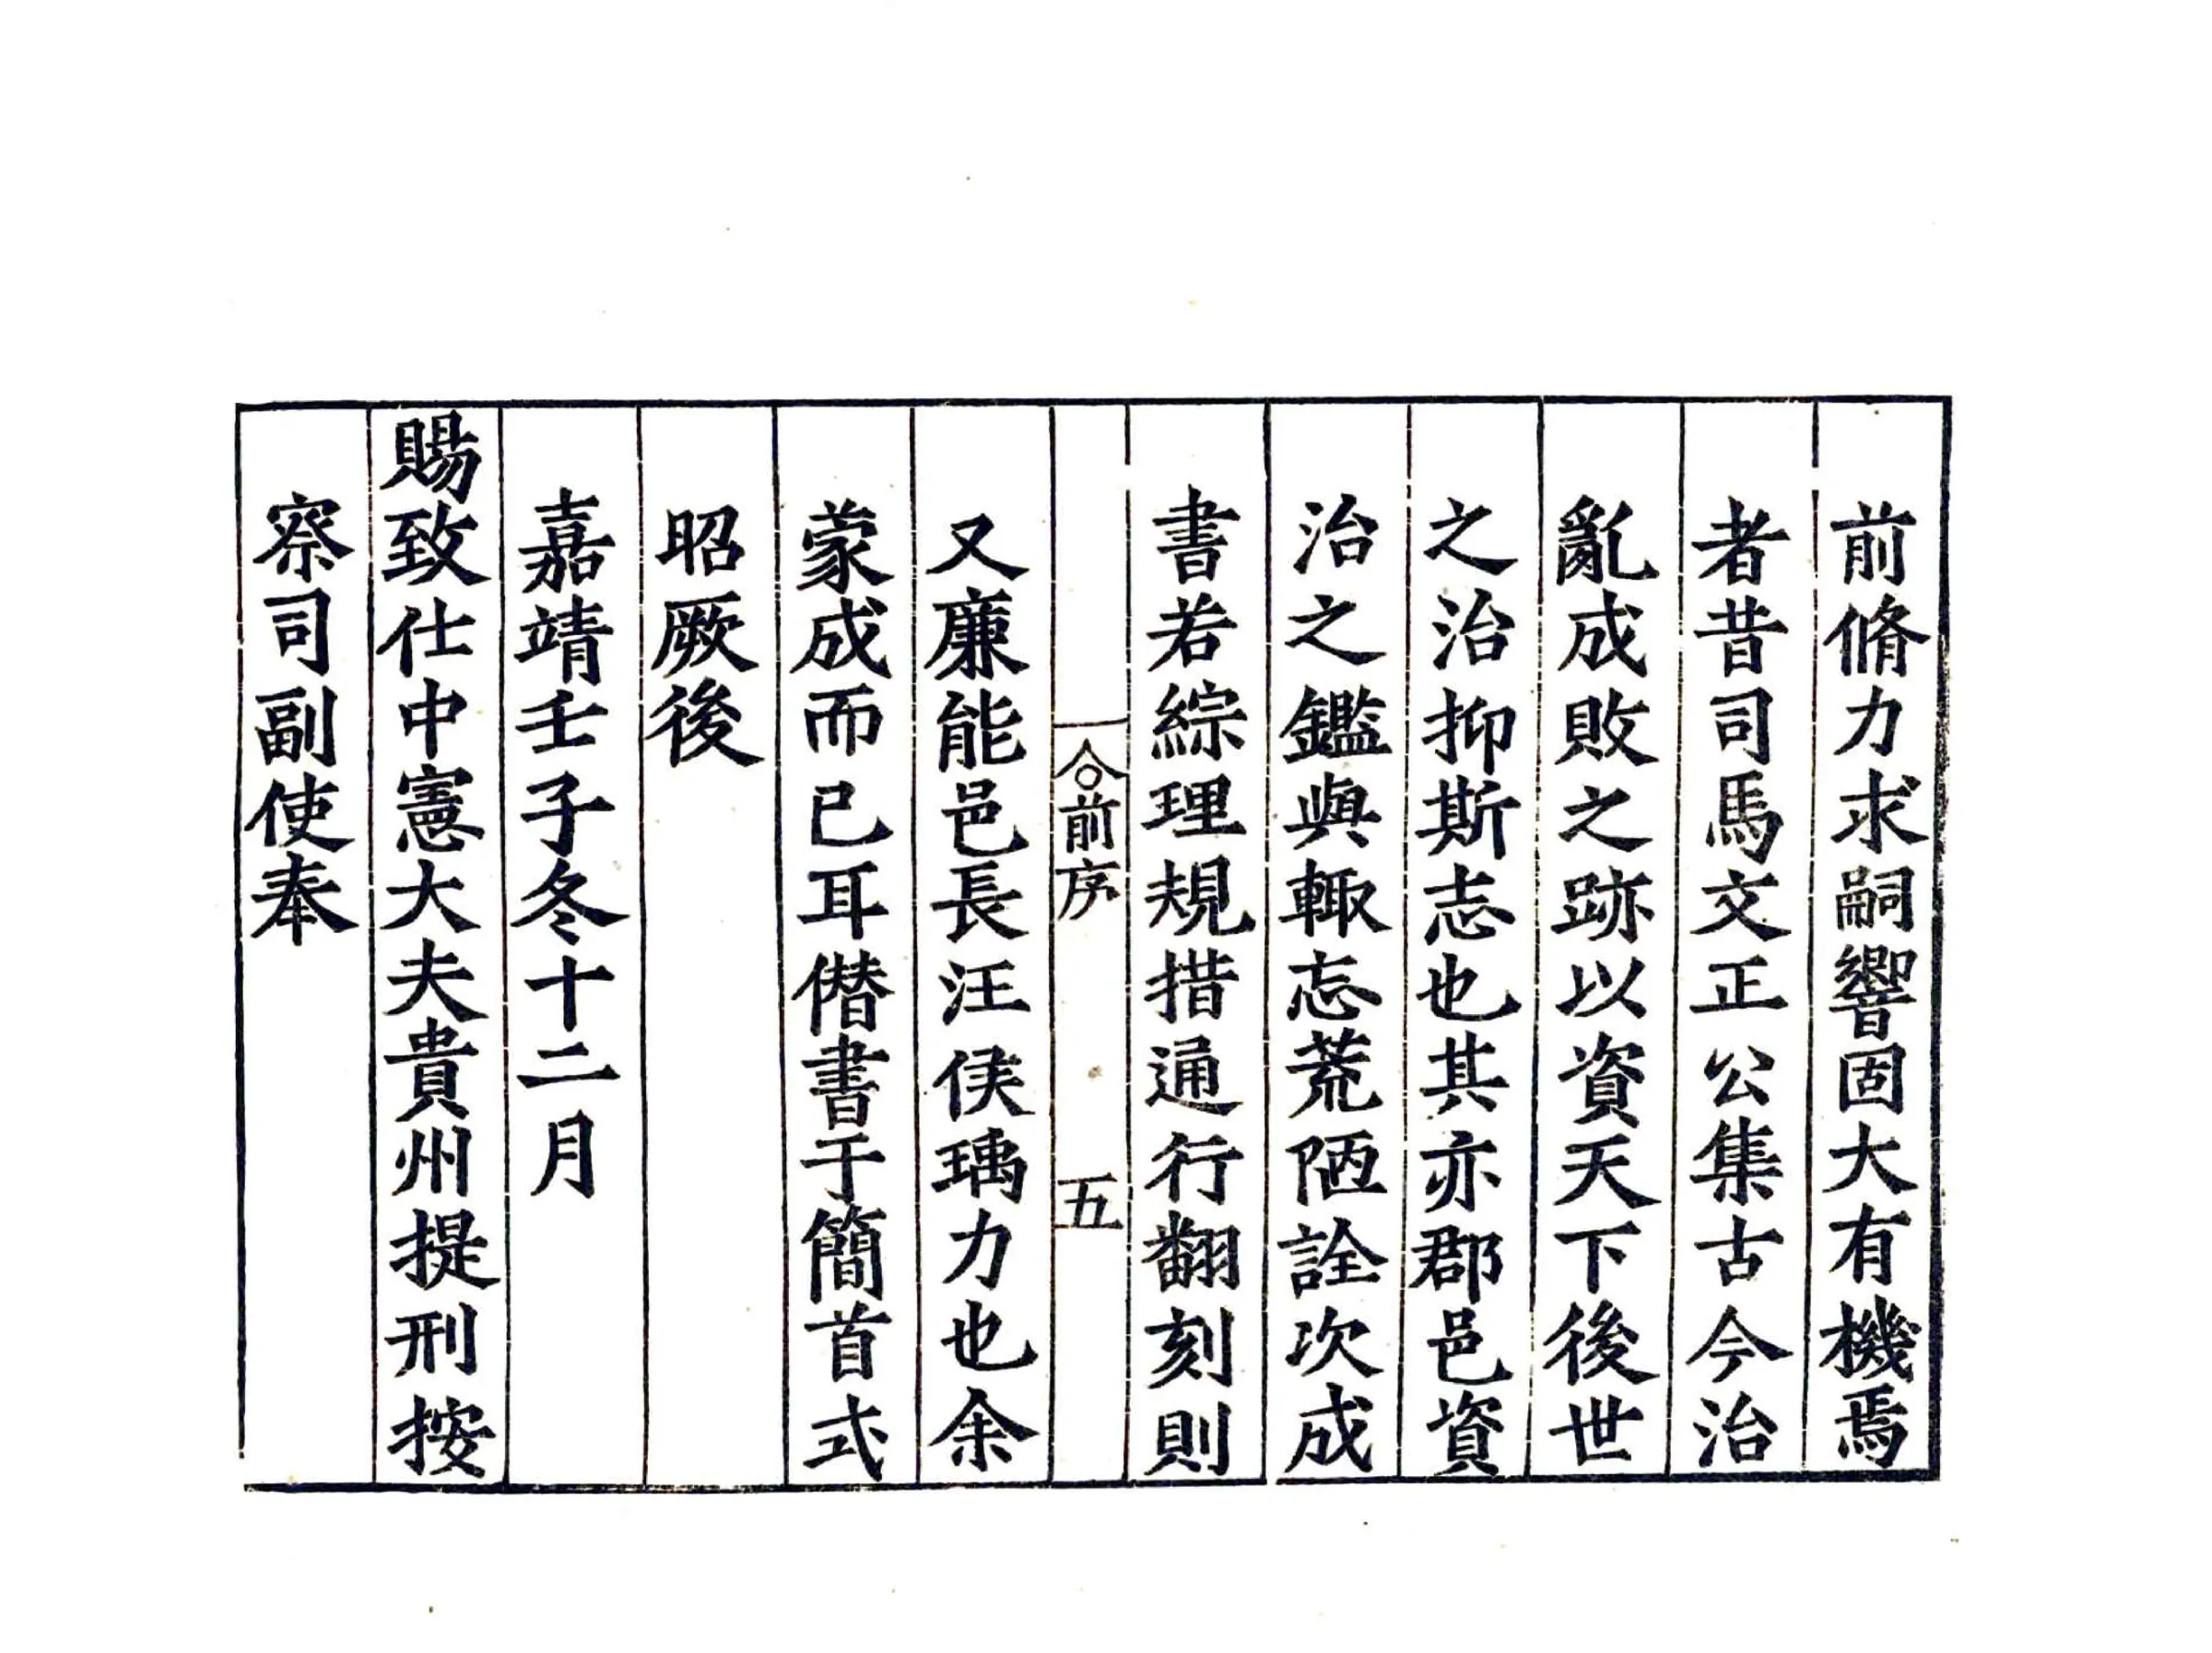 前脩力求嗣響固大有機焉
者昔司馬文正公集古今治
亂成敗之跡以資天下後世
之治抑斯志也其亦郡邑資
治之鑑與輙忘荒陋詮次成
書若綜理規措通行翻刻則
前序 五
又廉能邑長汪侯瑀力也余
蒙成而已耳僣書于簡首式
昭厥後
嘉靖壬子冬十二月
賜致仕中憲大夫貴州提刑按
察司副使奉